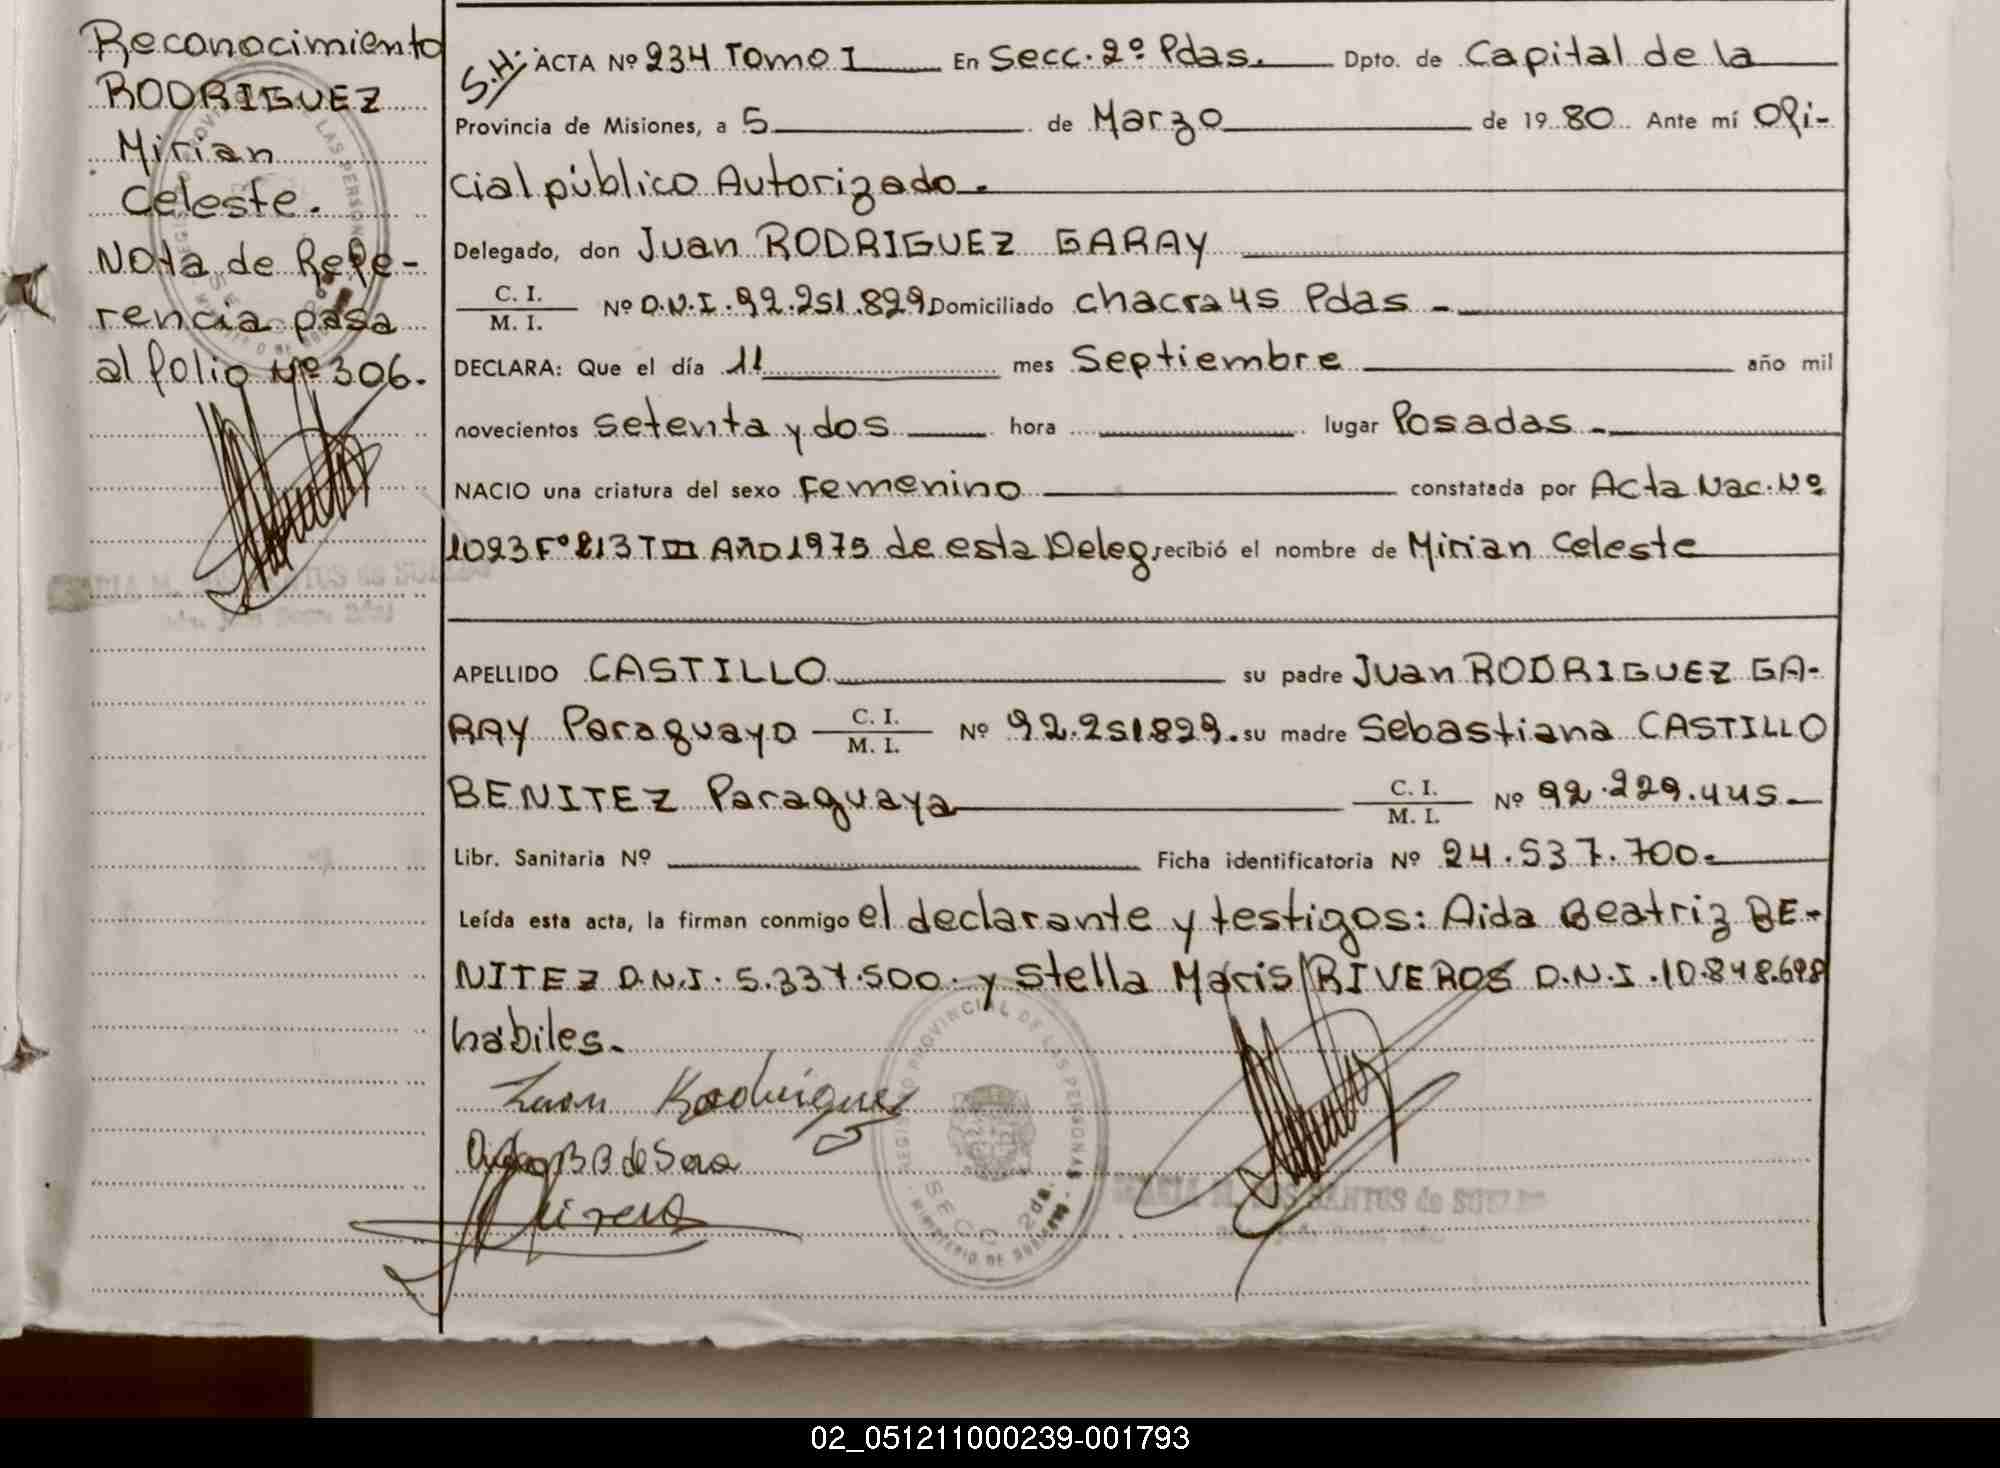 Reconocimiento
RODRIGUEZ
Mirian
Celeste.
Nota de Refe-
rencia pasa
al folio Nº 306.
S.H. ACTA Nº 234 Tomo I En Secc. 2º Pdas. Dpto. de Capital de la
Provincia de Misiones, a 5 de Marzo de 1980 Ante mí Ofi-
cial público Autorizado.
Delegado, don Juan RODRIGUEZ GARAY
C. I. / M. I. Nº D.N.I. 92.251.829 Domiciliado chacra 45 Pdas -
DECLARA: Que el día 11 mes Septiembre año mil
novecientos setenta y dos hora lugar Posadas -
NACIO una criatura del sexo Femenino constatada por Acta Nac. Nº
1023 Fº 213 T III Año 1975 de esta Deleg, recibió el nombre de Mirian Celeste
APELLIDO CASTILLO su padre Juan RODRIGUEZ GA-
RAY Paraguayo C. I. / M. I. Nº 92.251.829. su madre Sebastiana CASTILLO
BENITEZ Paraguaya C. I. / M. I. Nº 92.229.445 -
Libr. Sanitaria Nº Ficha identificatoria Nº 24.537.700.
Leída esta acta, la firman conmigo el declarante y testigos: Aida Beatriz BE-
NITEZ D.N.I. 5.337.500. y Stella Maris RIVEROS D.N.I. 10.848.698
hábiles.
Juan Rodriguez
REGISTRO PROVINCIAL DE LAS PERSONAS
SECC. 2da.
MINISTERIO DE GOBIERNO
MARIA M. DOS SANTOS de SUELDO
02_051211000239-001793